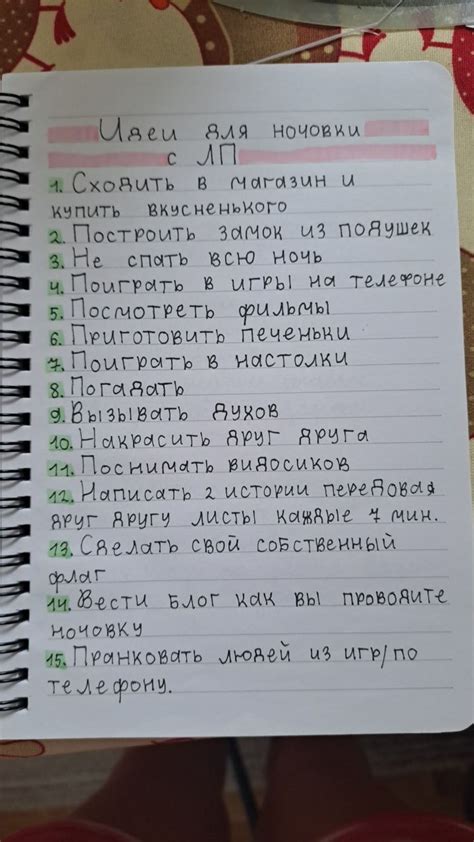 Идеи для ночовки
с ЛП
1. Сходить в магазин и
купить вкусненького
2. Построить замок из подушек
3. Не спать всю ночь
4. Поиграть в игры на телефоне
5. Посмотреть фильмы
6. Приготовить печеньки
7. Поиграть в настолки
8. Погадать
9. Вызывать духов
10. Накрасить друг друга
11. Поснимать видосиков
12. Написать 2 истории передовая
друг другу листы каждые 7 мин.
13. Сделать свой собственный
флаг
14. Вести блог как вы проводите
ночовку
15. Пранковать людей из игр/по
телефону.